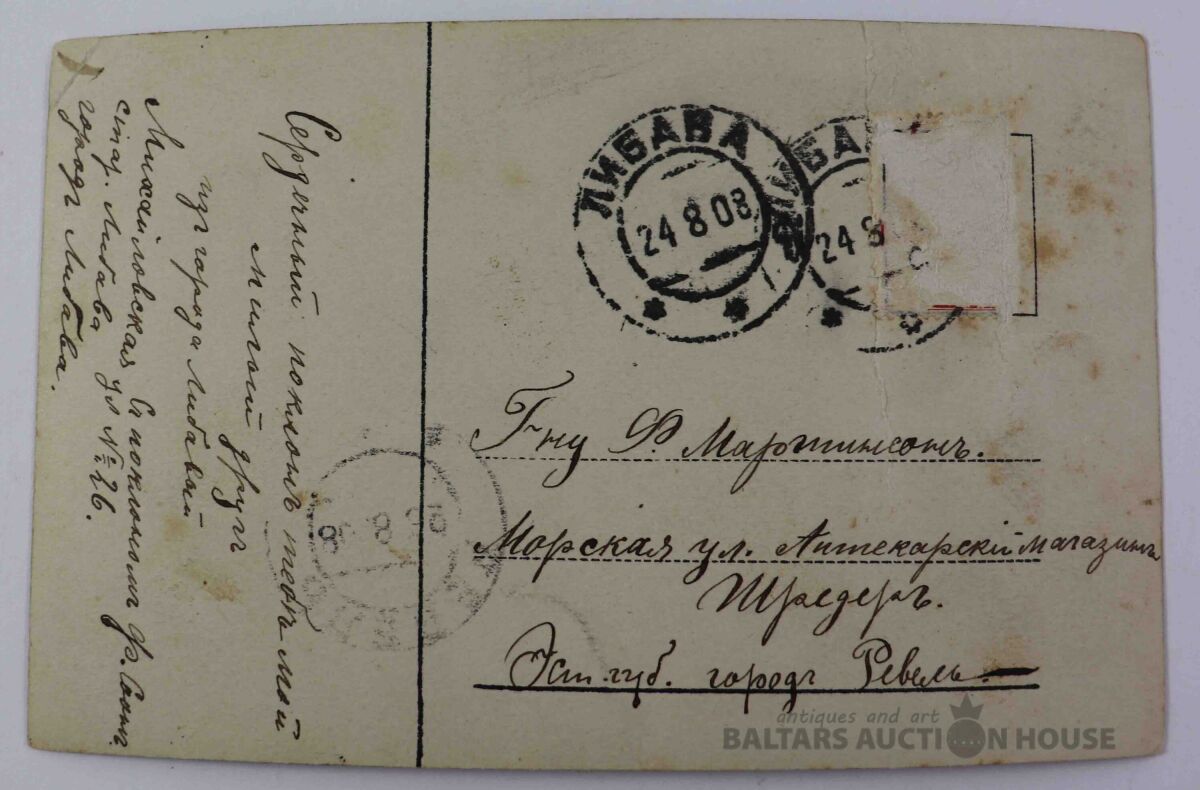 Сердечный поклонъ тебѣ мой
милый другъ
изъ города Либавы
Съ поклономъ Ф.
Михайловская ул № 26.
стар. Либава
городъ Либава.
ЛИБАВА
24 8 08
ЛИБАВА
24 8
Г-ну Ф. Мартинсонъ.
Морская ул. Аптекарскій магазинъ
Шредеръ.
Эст. губ. городъ Ревель
antiques and art
BALTARS AUCTION HOUSE